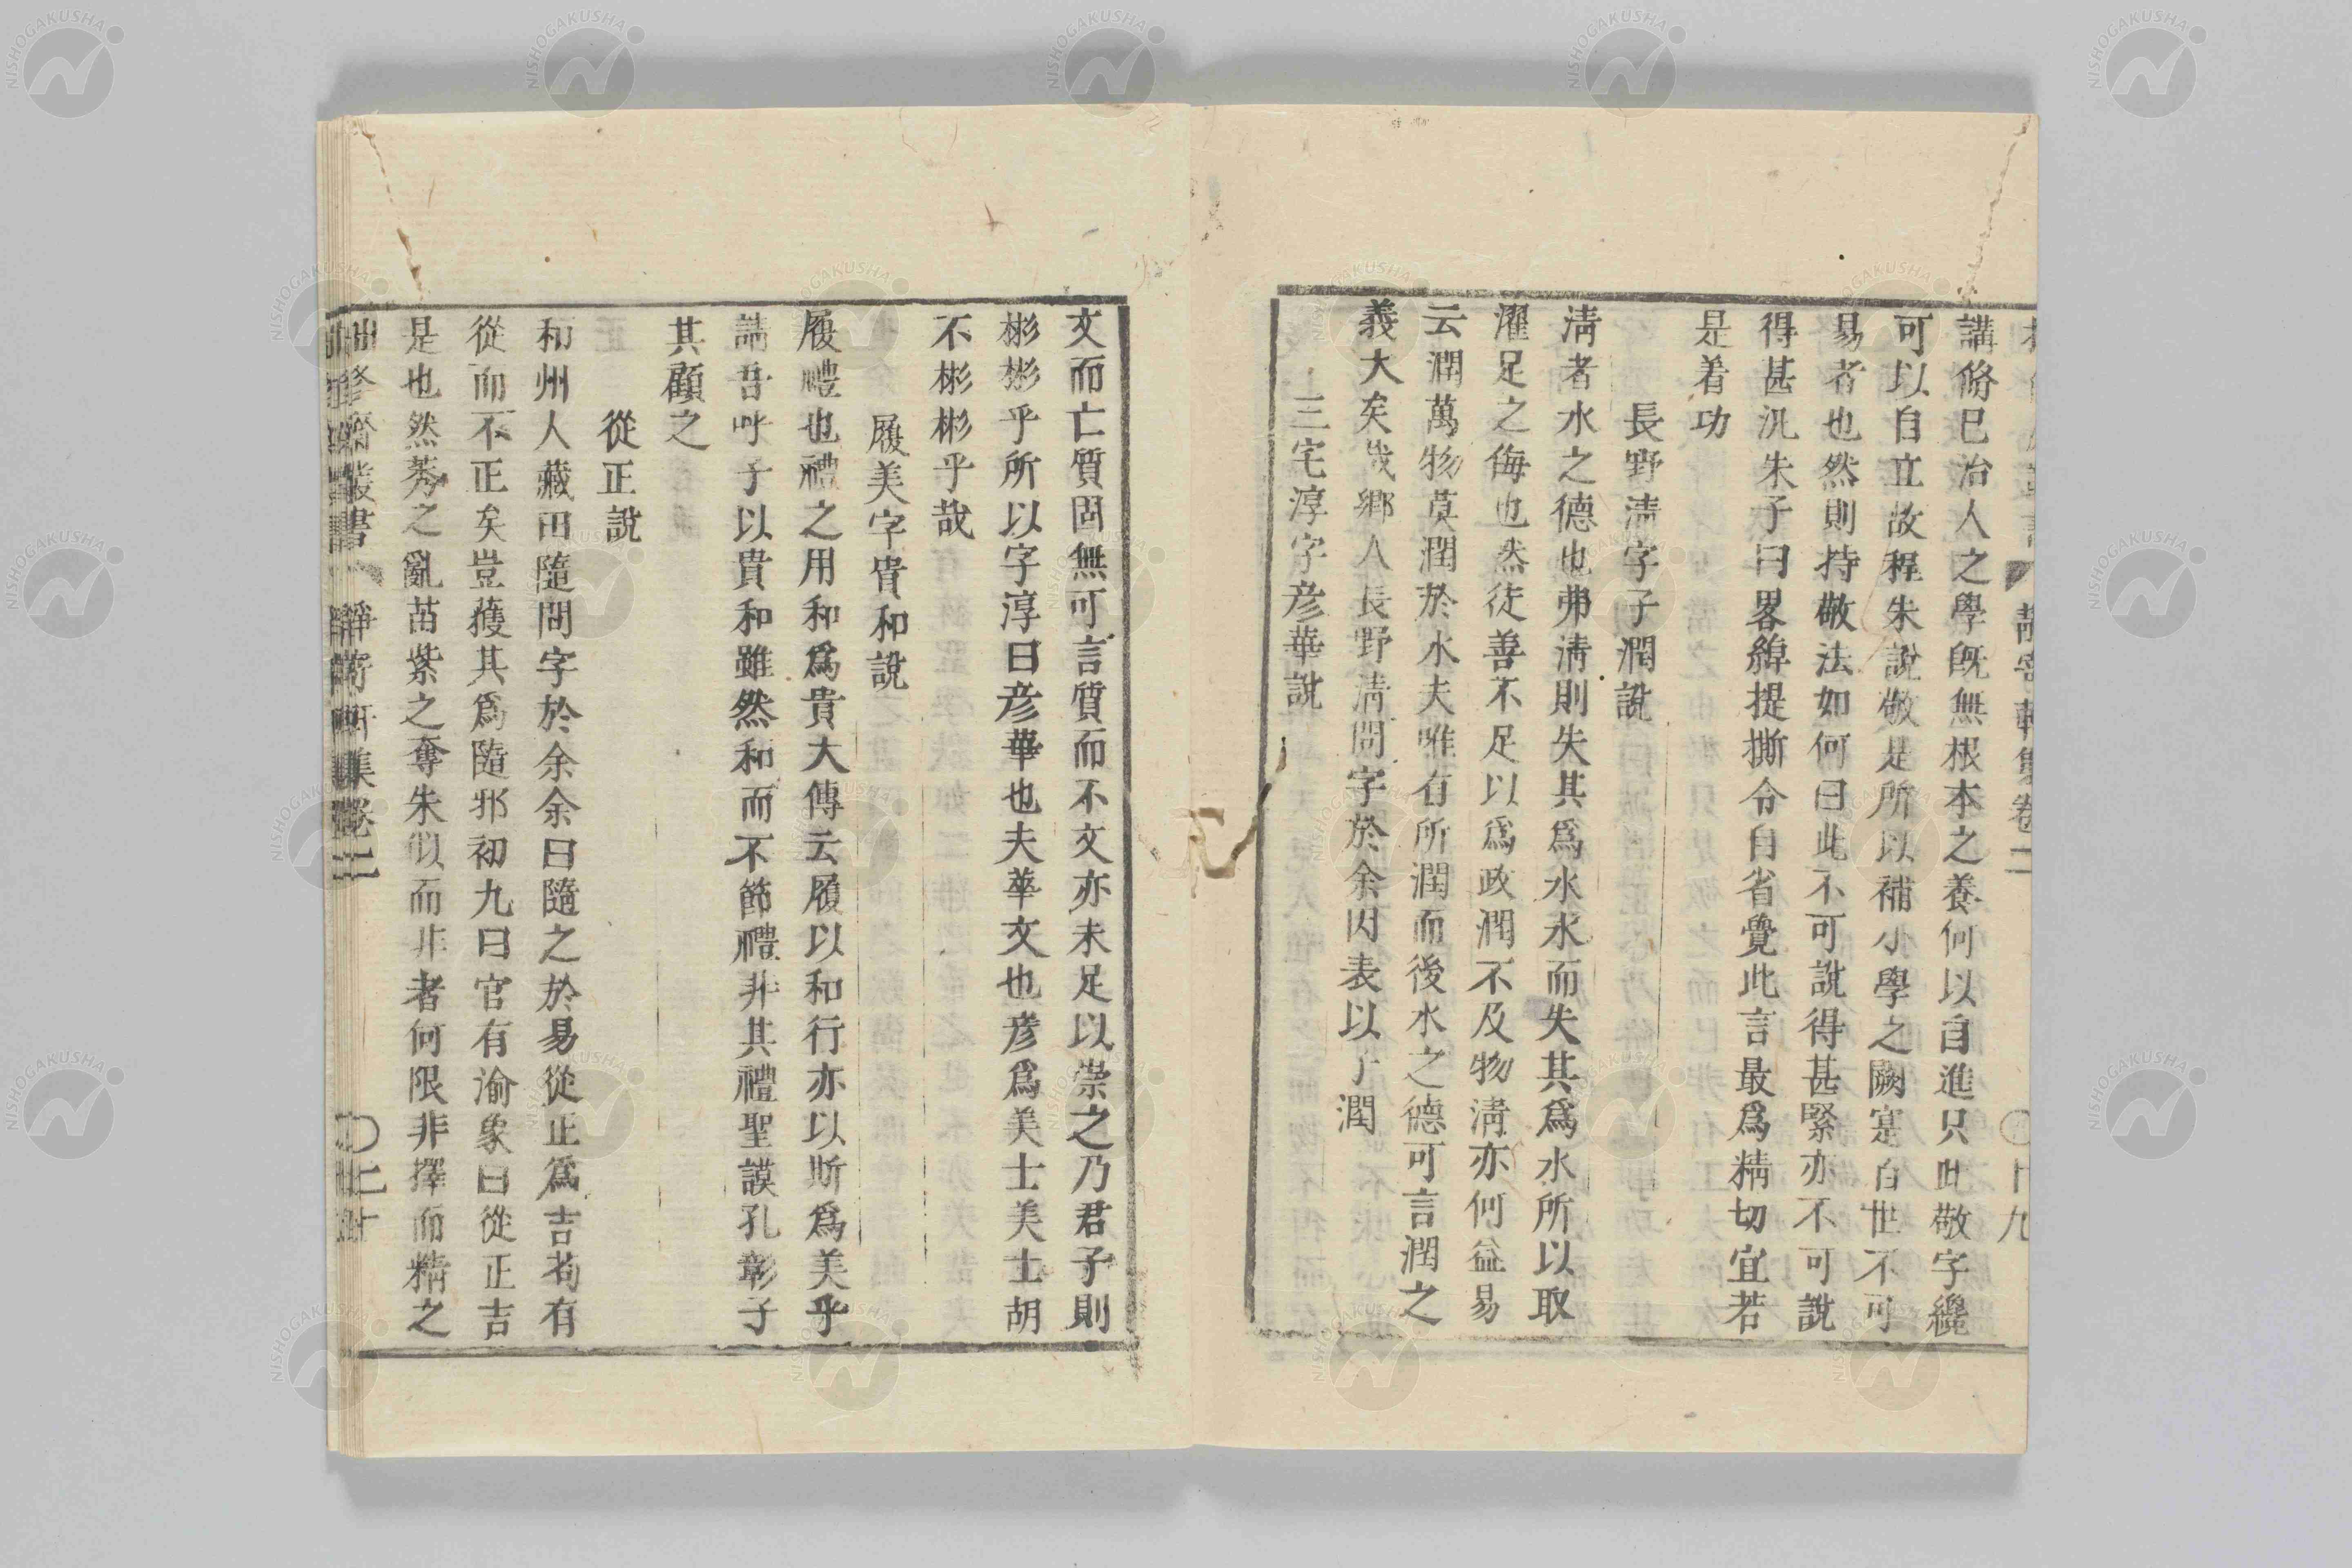 講脩已治人之學旣無根本之養何以自進只此敬字纔
可以自立故程朱說敬是所以補小學之闕寔百世不可
易者也然則持敬法如何曰此不可說得甚緊亦不可說
得甚汎朱子曰畧綽提撕令自省覺此言最爲精切宜若
是着功
長野淸字子潤說
淸者水之德也弗淸則失其爲水水而失其爲水所以取
濯足之侮也然徒善不足以爲政潤不及物淸亦何益易
云潤萬物莫潤於水夫唯有所潤而後水之德可言潤之
義大矣哉鄉人長野淸問字於余因表以子潤
三宅淳字彥華說
文而亡質固無可言質而不文亦未足以崇之乃君子則
彬彬乎所以字淳曰彥華也夫華文也彥爲美士美士胡
不彬彬乎哉
履美字貴和說
履禮也禮之用和爲貴大傳云履以和行亦以斯爲美乎
請吾呼子以貴和雖然和而不節禮非其禮聖謨孔彰子
其顧之
從正說
和州人藏田隨問字於余余曰隨之於易從正爲吉苟有
從而不正矣豈獲其爲隨邪初九曰官有渝象曰從正吉
是也然莠之亂苗紫之奪朱似而非者何限非擇而精之